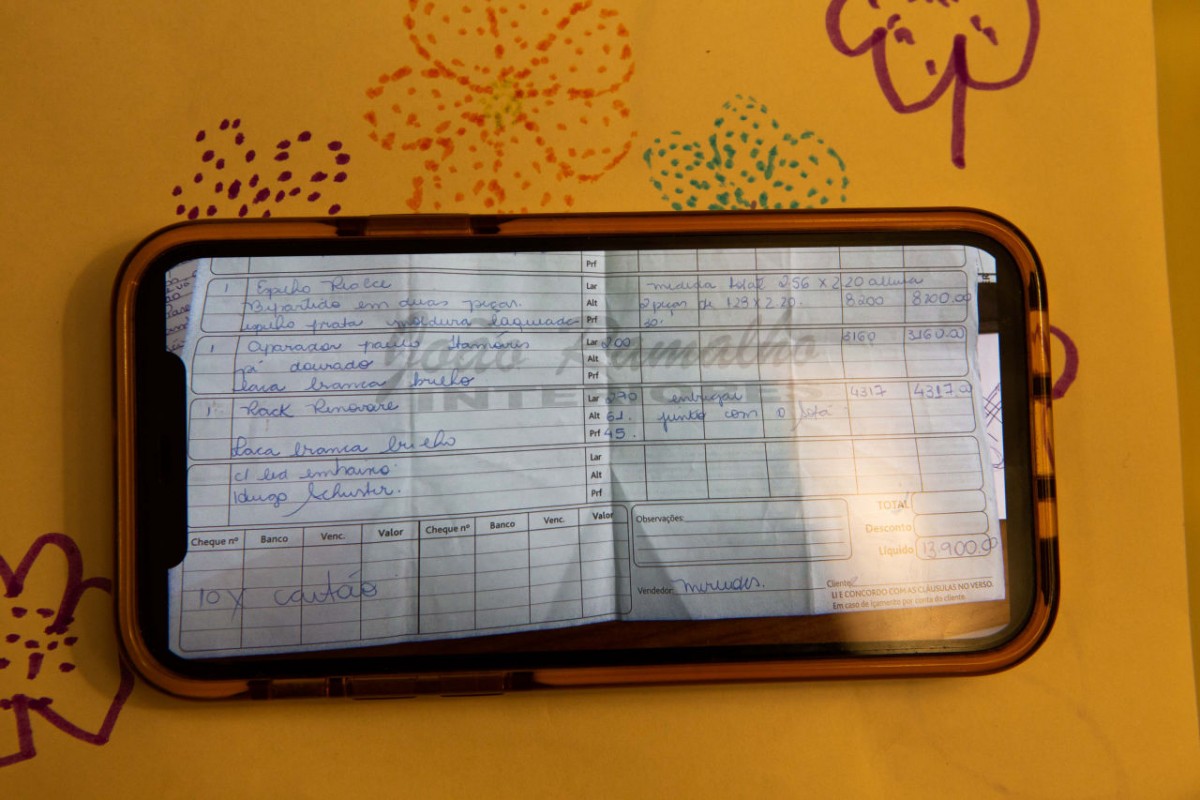 Prf
1 Espelho Lar medida total 256 x 2 20 altura
Bipartido em duas peças. Alt 2 peças de 128 x 2.20. 8200 8200.00
espelho prata moldura laqueada Prf
João Ramalho
INTERIORES
1 Aparador Lar 200 3160 3160.00
pé dourado Alt
Laca branca brilho Prf
1 Rack Renovare Lar 270 entregar 4317 4317.00
Alt 61. junto com o sofá
Laca branca brilho Prf 45.
c/ led embaixo Lar
Alt
Schuster. Prf
Cheque nº Banco Venc. Valor Cheque nº Banco Venc. Valor
10 x cartão
Observações:
TOTAL
Desconto
Líquido 13.900.00
Vendedor:
Cliente:
LI E CONCORDO COM AS CLÁUSULAS NO VERSO.
Em caso de içamento por conta do cliente.